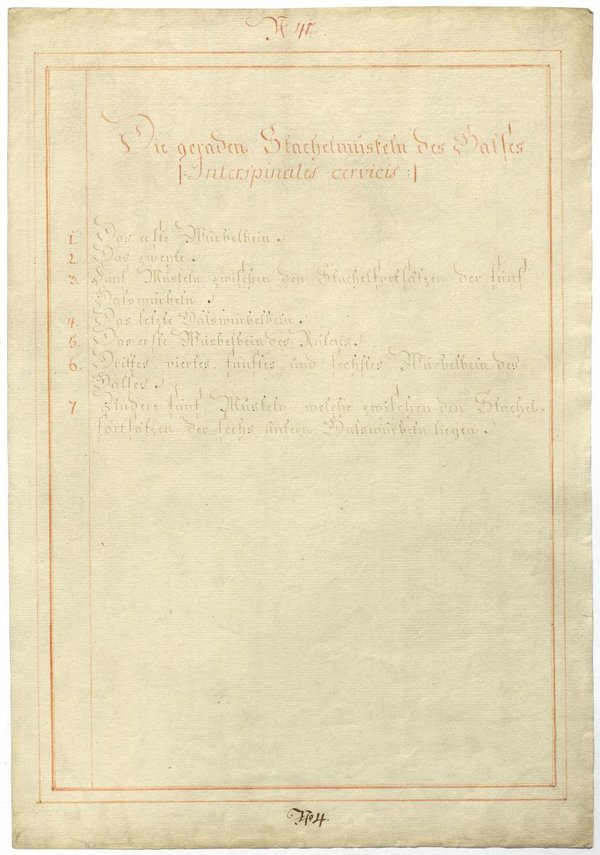 N 40.
Die geraden Stachelmuskeln des Halses
|: Interspinales cervicis :|
1. Das erste Würbelbein.
2. Das zweyte.
3. Fünf Muskeln zwischen den Stachelfortsätzen der fünf
Halswürbeln.
4. Das letzte Halswürbelbein.
5. Das erste Würbelbein des Rükens.
6. Drittes, viertes, fünftes, und sechstes Würbelbein des
Halses.
7 Andere fünf Muskeln welche zwischen den Stachel-
fortsätzen der sechs untern Halswürbeln liegen.
No 4.